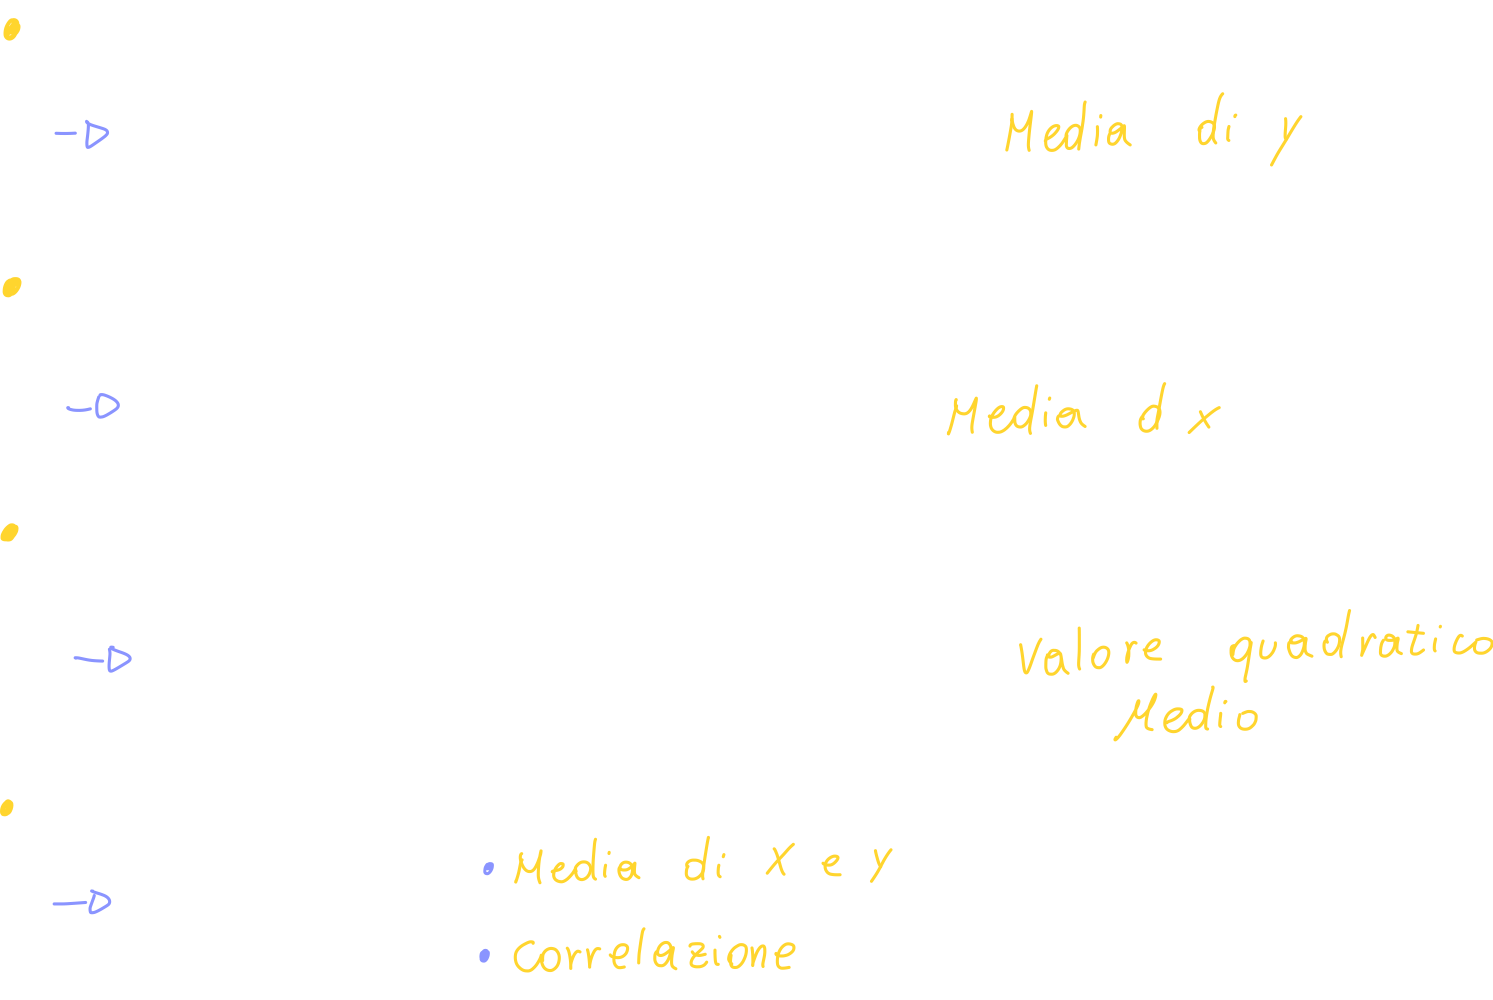 Media di y
Media d x
Valore quadratico
Medio
• Media di X e y
• Correlazione